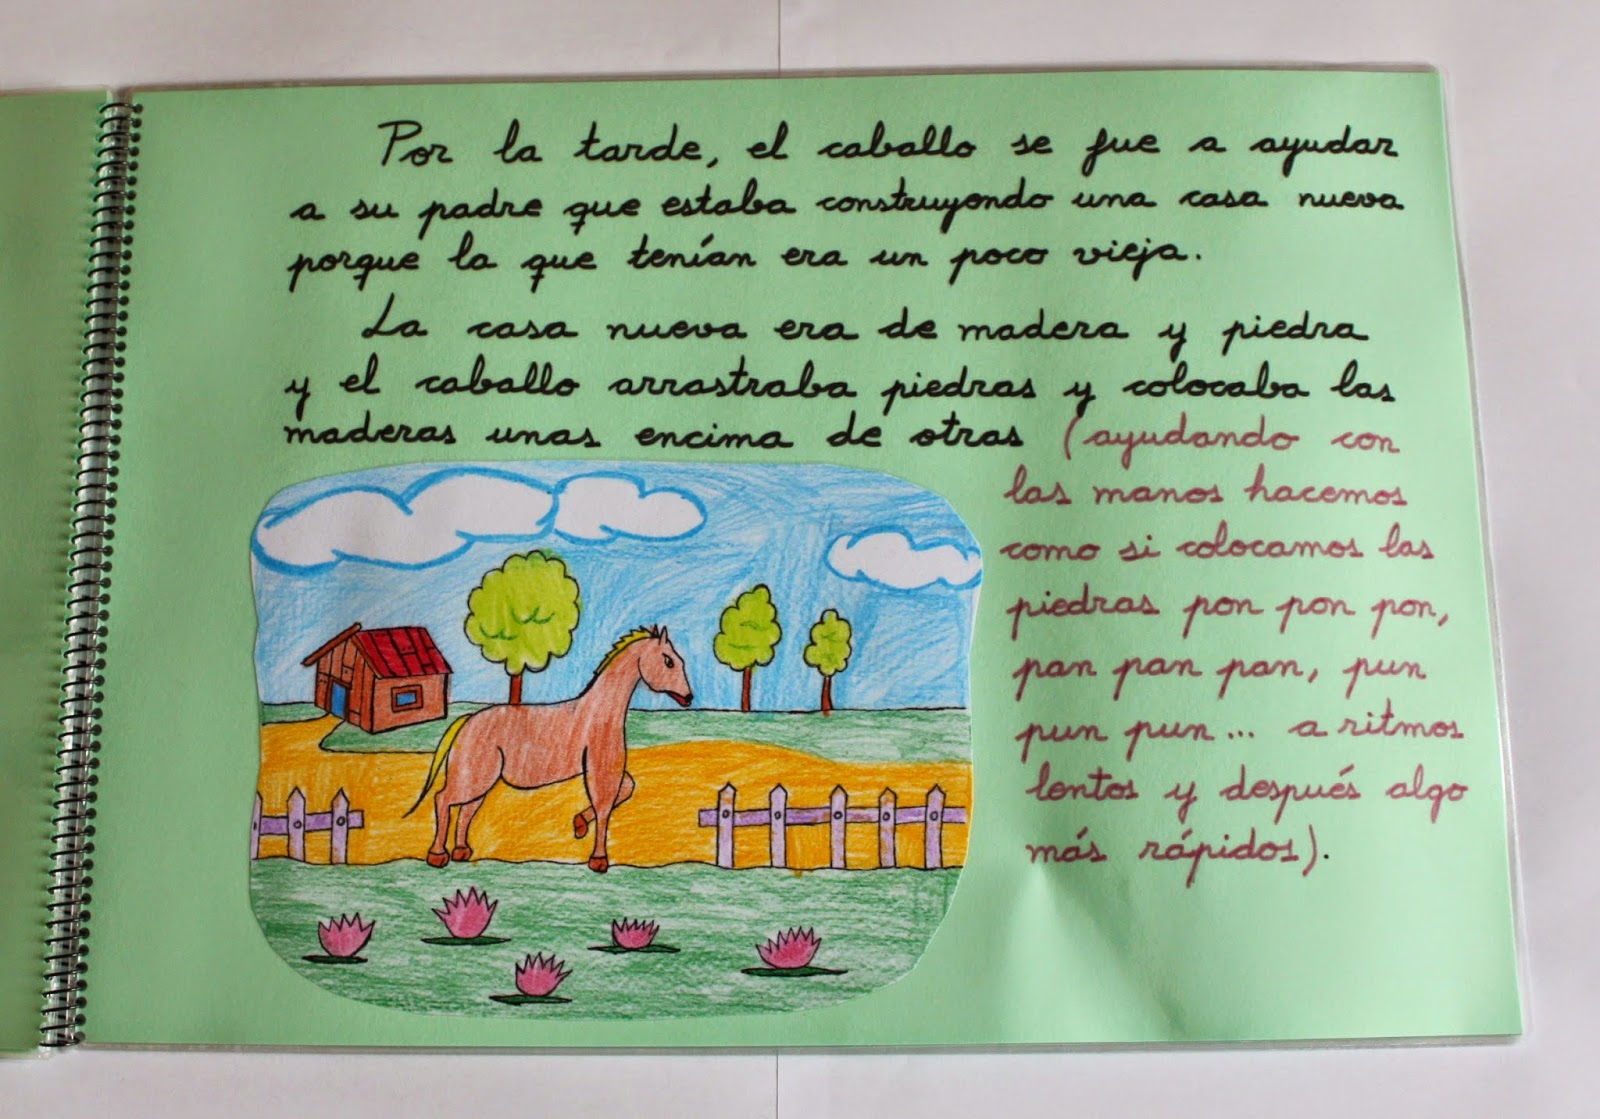 Por la tarde, el caballo se fue a ayudar
a su padre que estaba construyendo una casa nueva
porque la que tenían era un poco vieja.
La casa nueva era de madera y piedra
y el caballo arrastraba piedras y colocaba las
maderas unas encima de otras (ayudando con
las manos hacemos
como si colocamos las
piedras pon pon pon,
pan pan pan, pun
pun pun... a ritmos
lentos y después algo
más rápidos).